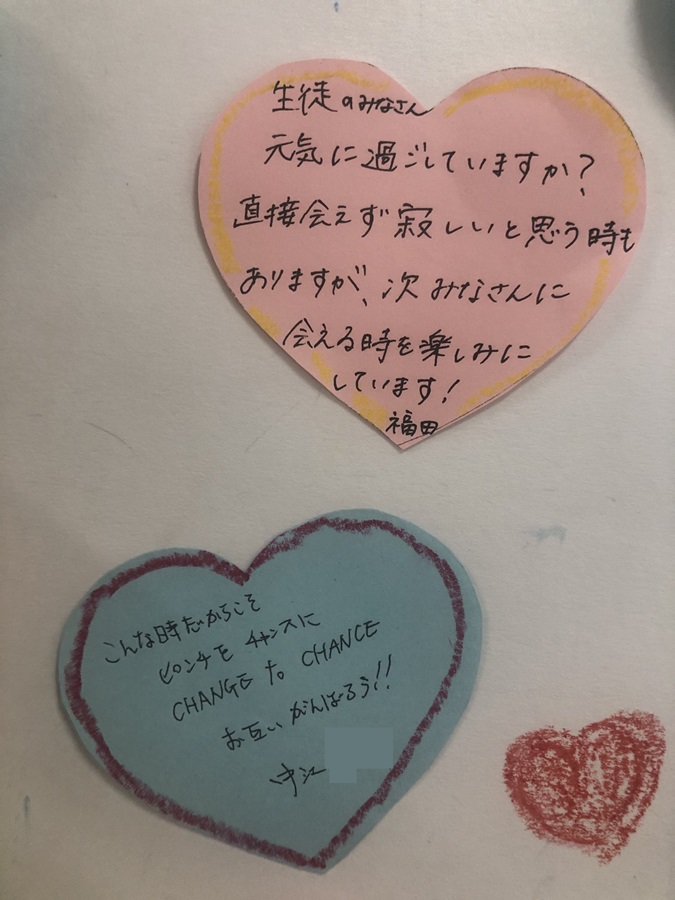 生徒のみなさん
元気に過ごしていますか?
直接会えず寂しいと思う時も
ありますが、次みなさんに
会える時を楽しみに
しています!
福田
こんな時だからこそ
ピンチを チャンスに
CHANGE to CHANCE
お互いがんばろう!!
中江